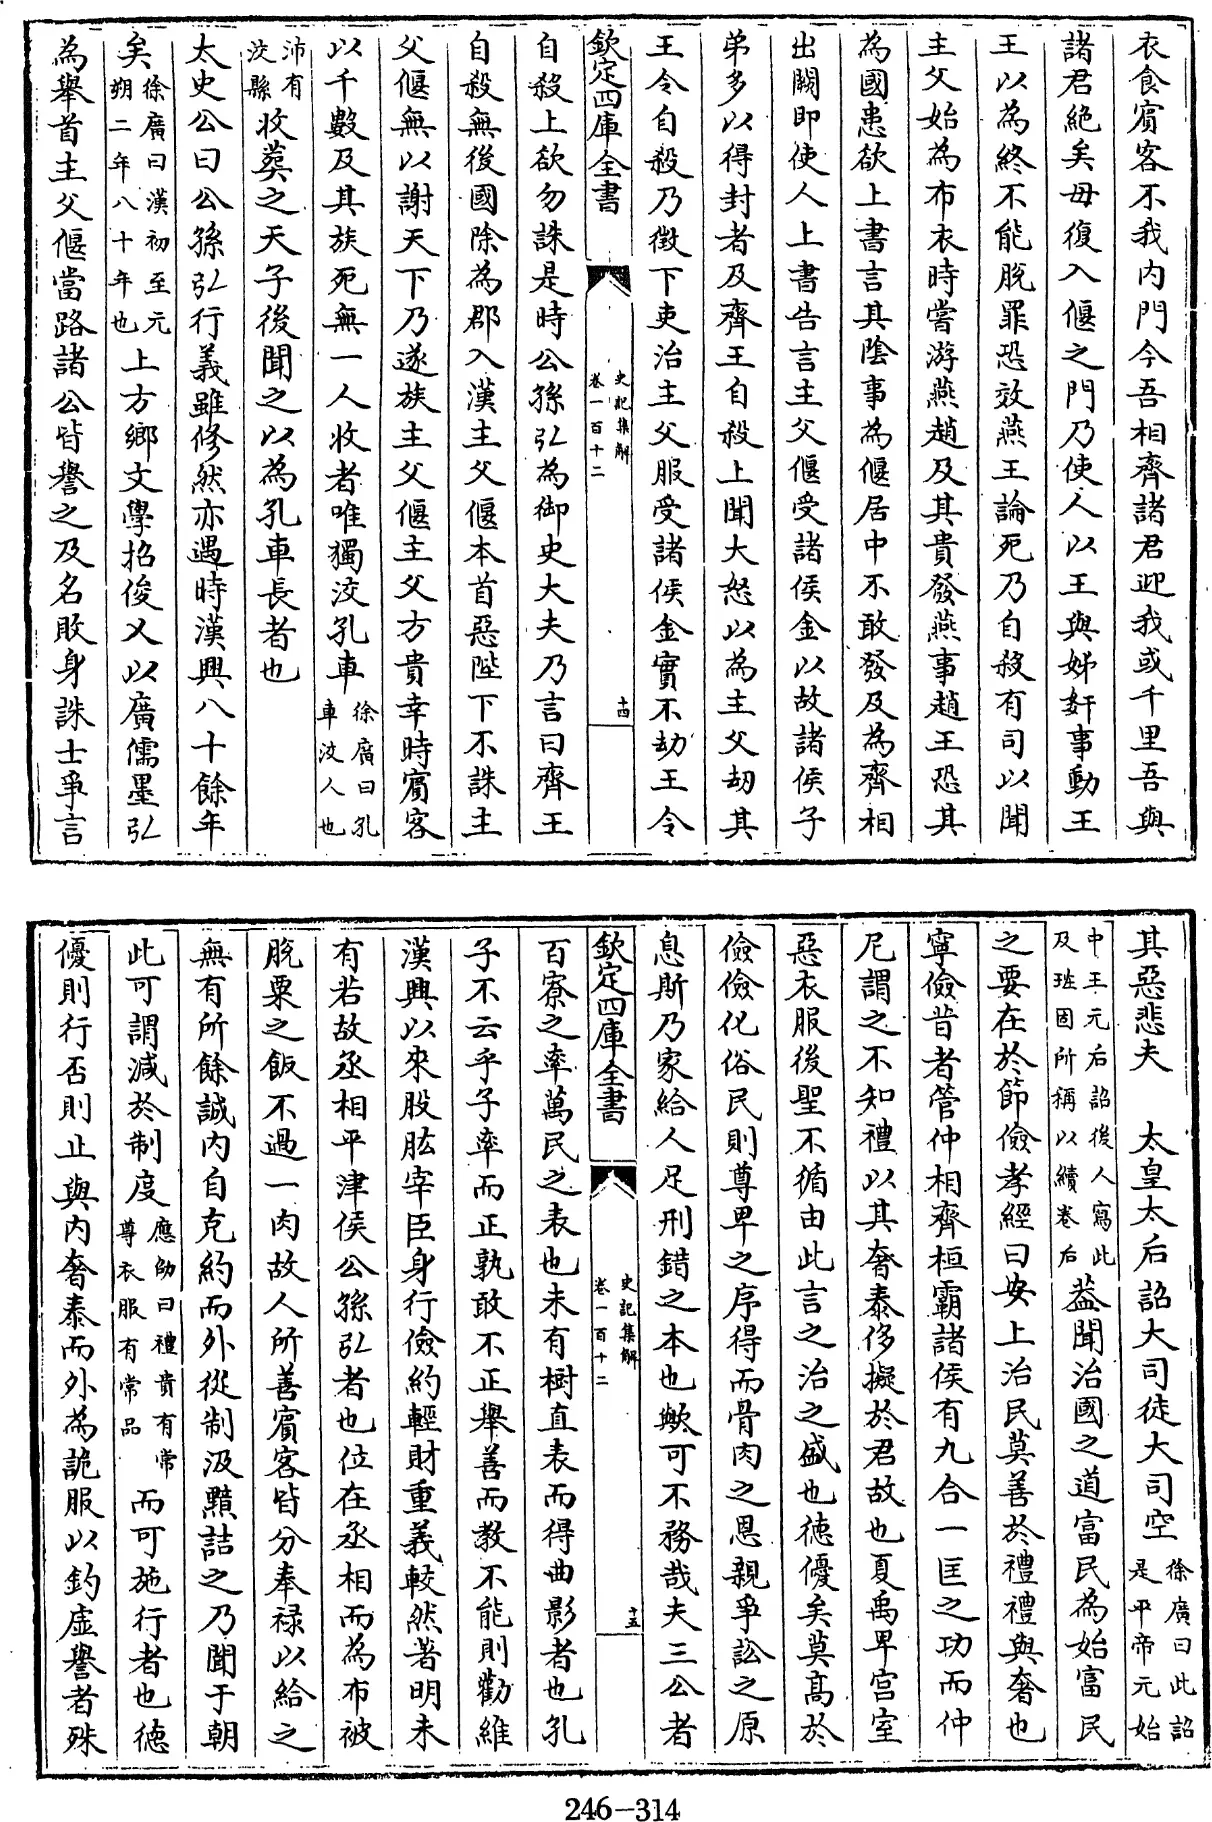 衣食賔客不我内門今吾相齊諸君迎我或千里吾與
諸君絶矣毋復入偃之門乃使人以王與姊姧事動王
王以為終不能脱罪恐效燕王論死乃自殺有司以聞
主父始為布衣時嘗游燕趙及其貴發燕事趙王恐其
為國患欲上書言其隂事為偃居中不敢發及為齊相
出闗即使人上書告言主父偃受諸侯金以故諸侯子
弟多以得封者及齊王自殺上聞大怒以為主父刧其
王令自殺乃徴下吏治主父服受諸侯金實不劫王令
欽定四庫全書
史記集解
卷一百十二
十四
自殺上欲勿誅是時公孫弘為御史大夫乃言曰齊王
自殺無後國除為郡入漢主父偃本首惡陛下不誅主
父偃無以謝天下乃遂族主父偃主父方貴幸時賔客
以千數及其族死無一人收者唯獨洨孔車徐廣曰孔
車洨人也
沛有
洨縣收葬之天子後聞之以為孔車長者也
太史公曰公孫弘行義雖修然亦遇時漢興八十餘年
矣徐廣曰漢初至元
朔二年八十年也上方鄉文學招俊乂以廣儒墨弘
為舉首主父偃當路諸公皆譽之及名敗身誅士爭言
其惡悲夫　太皇太后詔大司徒大司空徐廣曰此詔
是平帝元始
中王元后詔後人寫此
及班固所稱以續卷后葢聞治國之道富民為始富民
之要在於節儉孝經曰安上治民莫善於禮禮與奢也
寧儉昔者管仲相齊桓霸諸侯有九合一匡之功而仲
尼謂之不知禮以其奢泰侈擬於君故也夏禹卑宫室
惡衣服後聖不循由此言之治之盛也徳優矣莫高於
儉儉化俗民則尊卑之序得而骨肉之恩親爭訟之原
息斯乃家給人足刑錯之本也歟可不務哉夫三公者
欽定四庫全書
史記集解
卷一百十二
十五
百寮之率萬民之表也未有樹直表而得曲影者也孔
子不云乎子率而正孰敢不正舉善而教不能則勸維
漢興以來股肱宰臣身行儉約輕財重義較然著明未
有若故丞相平津侯公孫弘者也位在丞相而為布被
脱粟之飯不過一肉故人所善賔客皆分奉禄以給之
無有所餘誠内自克約而外從制汲黯詰之乃聞于朝
此可謂減於制度應劭曰禮貴有常
尊衣服有常品而可施行者也徳
優則行否則止與内奢泰而外為詭服以釣虛譽者殊
246-314